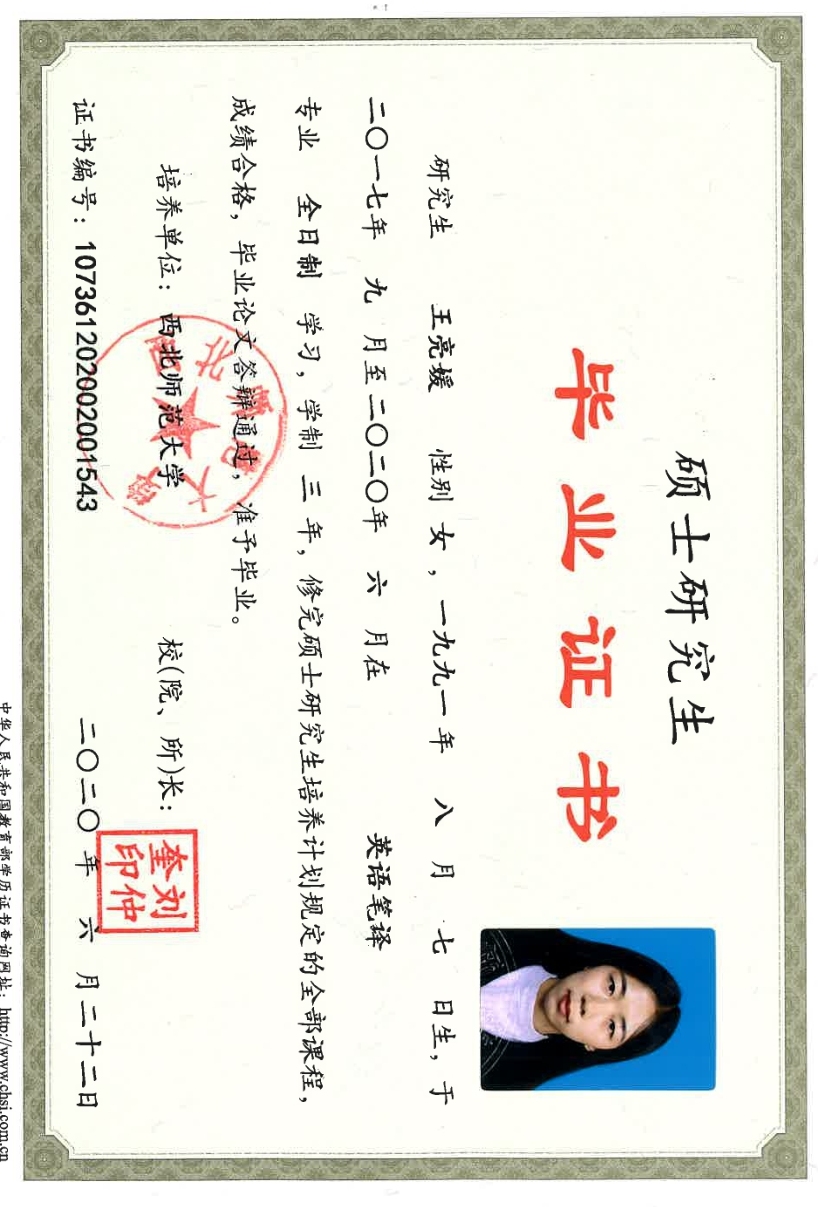 硕士研究生
毕业证书
研究生 王亮媛 性别 女，一九九一年 八 月 七 日生，于
二〇一七年 九 月至二〇二〇年 六 月在 英语笔译
专业 全日制 学习，学制 三 年，修完硕士研究生培养计划规定的全部课程，
成绩合格，毕业论文答辩通过，准予毕业。
培养单位：西北师范大学 校(院、所)长：
刘仲奎印
证书编号：107361202002001543 二〇二〇年 六 月二十二日
中华人民共和国教育部学历证书查询网址：http://www.chsi.com.cn